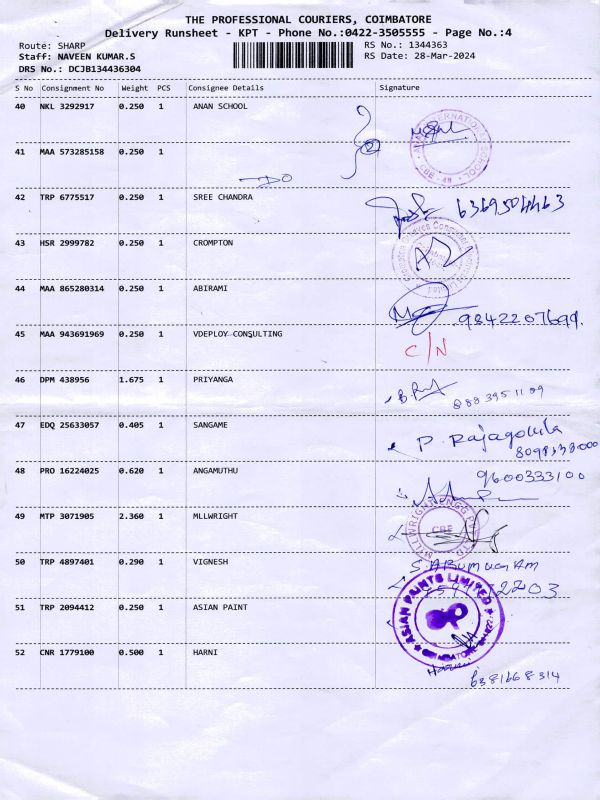 THE PROFESSIONAL COURIERS, COIMBATORE
Delivery Runsheet - KPT - Phone No.:0422-3505555 - Page No.:4
Route: SHARP
Staff: NAVEEN KUMAR.S
DRS No.: DCJB134436304
RS No.: 1344363
RS Date: 28-Mar-2024
S No Consignment No Weight PCS Consignee Details Signature
40 NKL 3292917 0.250 1 ANAN SCHOOL
41 MAA 573285158 0.250 1
DO
42 TRP 6775517 0.250 1 SREE CHANDRA 6369504463
43 HSR 2999782 0.250 1 CROMPTON
44 MAA 865280314 0.250 1 ABIRAMI 9842207699.
45 MAA 943691969 0.250 1 VDEPLOY CONSULTING C/N
46 DPM 438956 1.675 1 PRIYANGA
47 EDQ 25633057 0.405 1 SANGAME P. Rajagokila
48 PRO 16224025 0.620 1 ANGAMUTHU 9600333100
49 MTP 3071905 2.360 1 MLLWRIGHT
MILLWRIGHT ENGG P LTD
CBE
50 TRP 4897401 0.290 1 VIGNESH
51 TRP 2094412 0.250 1 ASIAN PAINT
ASIAN PAINTS LIMITED
COIMBATORE
52 CNR 1779100 0.500 1 HARNI
6381668314